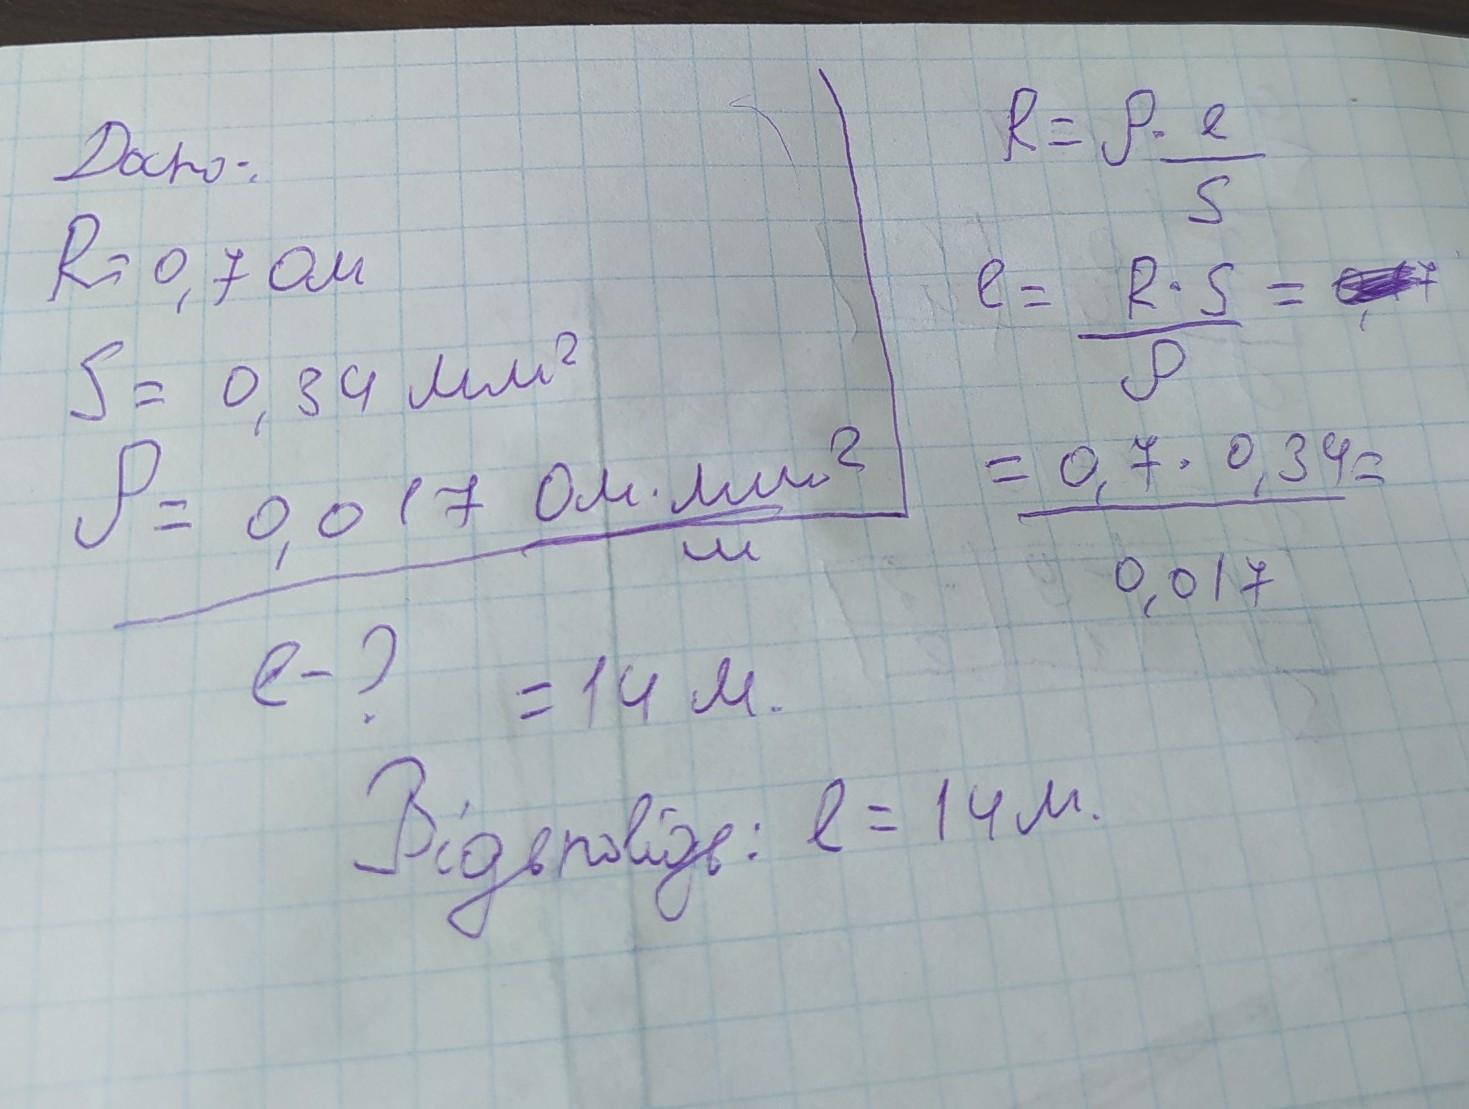 Дано:
R = 0,7 Ом
S = 0,34 мм²
ρ = 0,017 Ом·мм²/м
l - ?
R = ρ · l/S
l = R·S/ρ =
= 0,7 · 0,34/0,017 =
= 14 м.
Відповідь: l = 14 м.